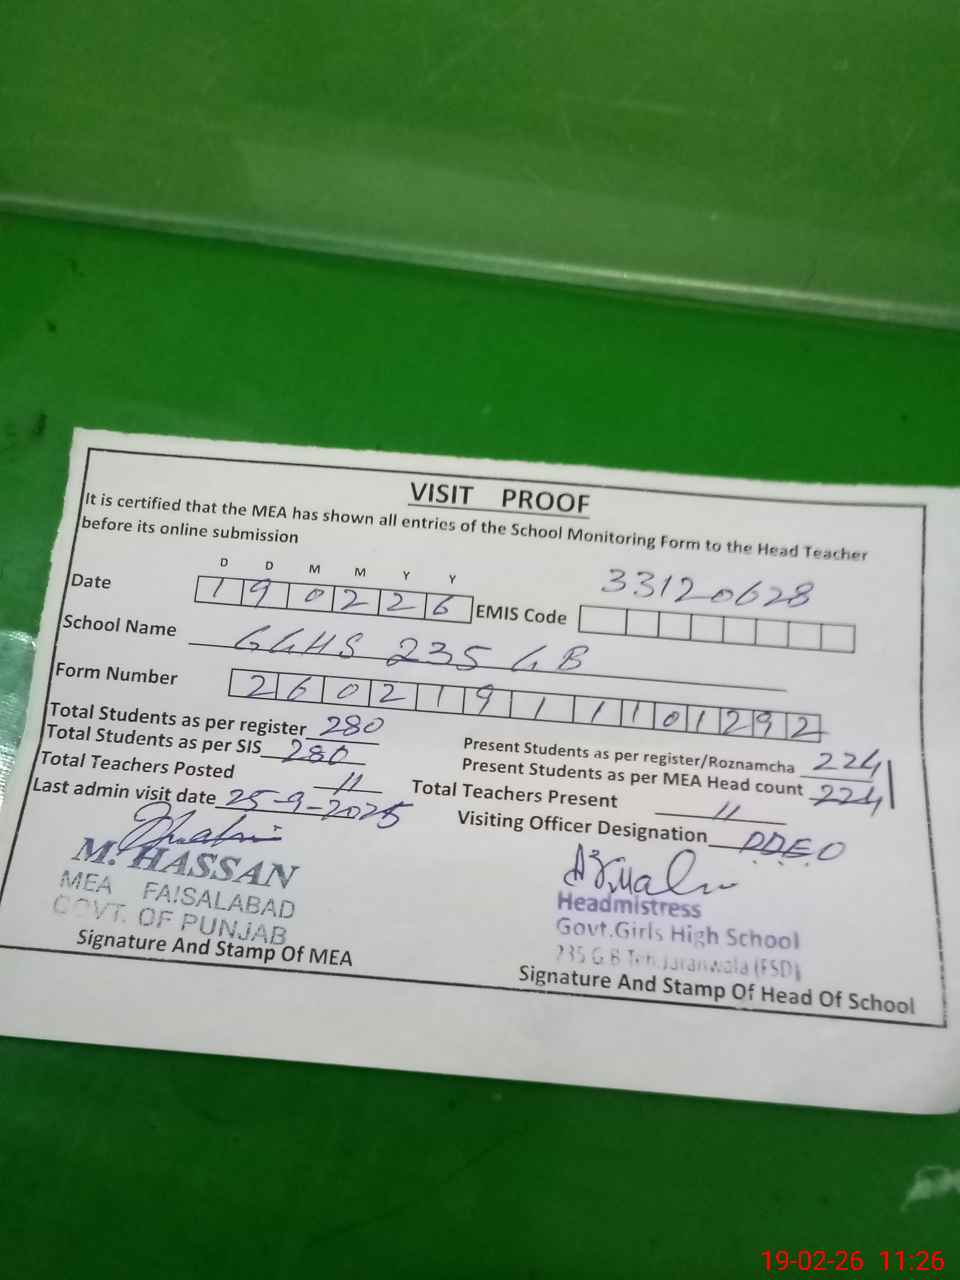 VISIT PROOF
It is certified that the MEA has shown all entries of the School Monitoring Form to the Head Teacher
before its online submission
D D M M Y Y
Date 190226 EMIS Code 33120628
School Name GGHS 235 GB
Form Number 26021911101292
Total Students as per register 280
Present Students as per register/Roznamcha 224
Total Students as per SIS 280
Present Students as per MEA Head count 224
Total Teachers Posted 11
Total Teachers Present 11
Last admin visit date 25-9-2025
Visiting Officer Designation D.D.E.O
M. HASSAN
MEA FAISALABAD
GOVT. OF PUNJAB
Signature And Stamp Of MEA
Headmistress
Govt.Girls High School
235 G.B Teh. Jaranwala (FSD)
Signature And Stamp Of Head Of School
19-02-26 11:26